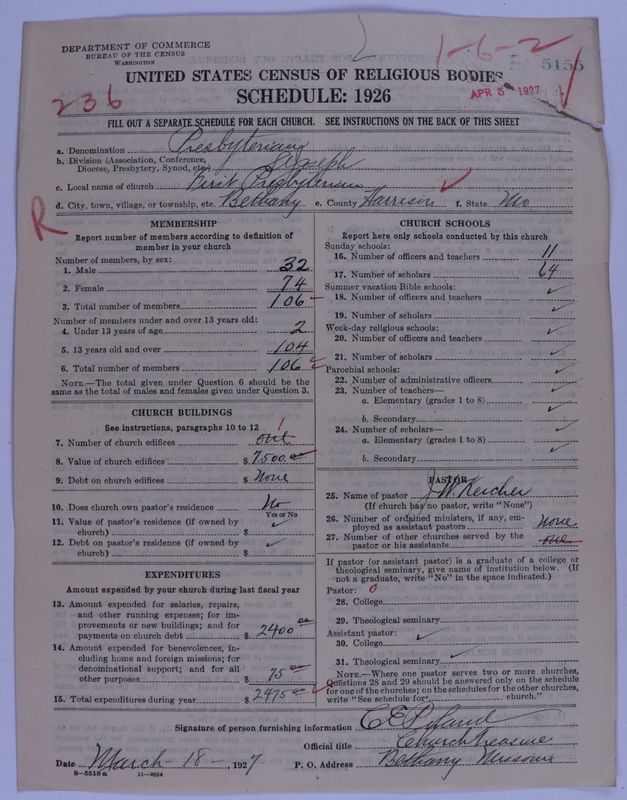 DEPARTMENT OF COMMERCE
BUREAU OF THE CENSUS
WASHINGTON
1-6-2
5155
UNITED STATES CENSUS OF RELIGIOUS BODIES
236
SCHEDULE: 1926
APR 5 1927
FILL OUT A SEPARATE SCHEDULE FOR EACH CHURCH. SEE INSTRUCTIONS ON THE BACK OF THIS SHEET
a. Denomination Presbyterian
b. Division (Association, Conference, Diocese, Presbytery, Synod, etc.) St Joseph
c. Local name of church First Presbyterian
d. City, town, village, or township, etc. Bethany e. County Harrison f. State Mo
R
MEMBERSHIP
Report number of members according to definition of
member in your church
Number of members, by sex:
1. Male 32
2. Female 74
3. Total number of members 106
Number of members under and over 13 years old:
4. Under 13 years of age 2
5. 13 years old and over 104
6. Total number of members 106
NOTE.—The total given under Question 6 should be
same as the total of males and females given under Question 3.
CHURCH BUILDINGS
See instructions, paragraphs 10 to 12
7. Number of church edifices one 1
8. Value of church edifices $ 7500.00
9. Debt on church edifices $ None
10. Does church own pastor's residence No
Yes or No
11. Value of pastor's residence (if owned by
church) $
12. Debt on pastor's residence (if owned by
church) $
EXPENDITURES
Amount expended by your church during last fiscal year
13. Amount expended for salaries, repairs,
and other running expenses; for im-
provements or new buildings; and for
payments on church debt $ 2400 00
14. Amount expended for benevolences, in-
cluding home and foreign missions; for
denominational support; and for all
other purposes $ 75 00
15. Total expenditures during year $ 2475 00
CHURCH SCHOOLS
Report here only schools conducted by this church
Sunday schools:
16. Number of officers and teachers 11
17. Number of scholars 64
Summer vacation Bible schools:
18. Number of officers and teachers
19. Number of scholars
Week-day religious schools:
20. Number of officers and teachers
21. Number of scholars
Parochial schools:
22. Number of administrative officers
23. Number of teachers—
a. Elementary (grades 1 to 8)
b. Secondary
24. Number of scholars—
a. Elementary (grades 1 to 8)
b. Secondary
PASTOR
25. Name of pastor J W Kercher
(If church has no pastor, write "None")
26. Number of ordained ministers, if any, em-
ployed as assistant pastors None
27. Number of other churches served by the
pastor or his assistants one
If pastor (or assistant pastor) is a graduate of a college or
theological seminary, give name of institution below. (If
not a graduate, write "No" in the space indicated.)
Pastor: 0
28. College
29. Theological seminary
Assistant pastor:
30. College
31. Theological seminary
NOTE.—Where one pastor serves two or more churches,
Questions 28 and 29 should be answered only on the schedule
for one of the churches; on the schedules for the other churches,
write "See schedule for church."
Signature of person furnishing information C E
Official title Church Treasure
Date March - 18 - , 1927 P. O. Address Bethany Missouri
8—5518 a 11—9664